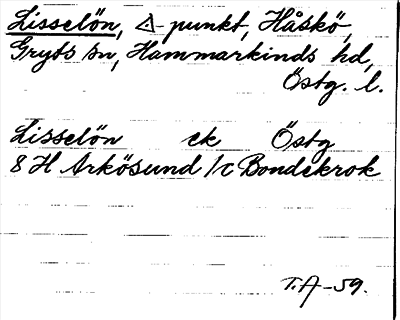 Lisselön, △-punkt, Håskö,
Gryts sn, Hammarkinds hd,
Östg. l.
Lisselön ek Östg
8 H Arkösund 1/c Bondekrok
T.A-59.